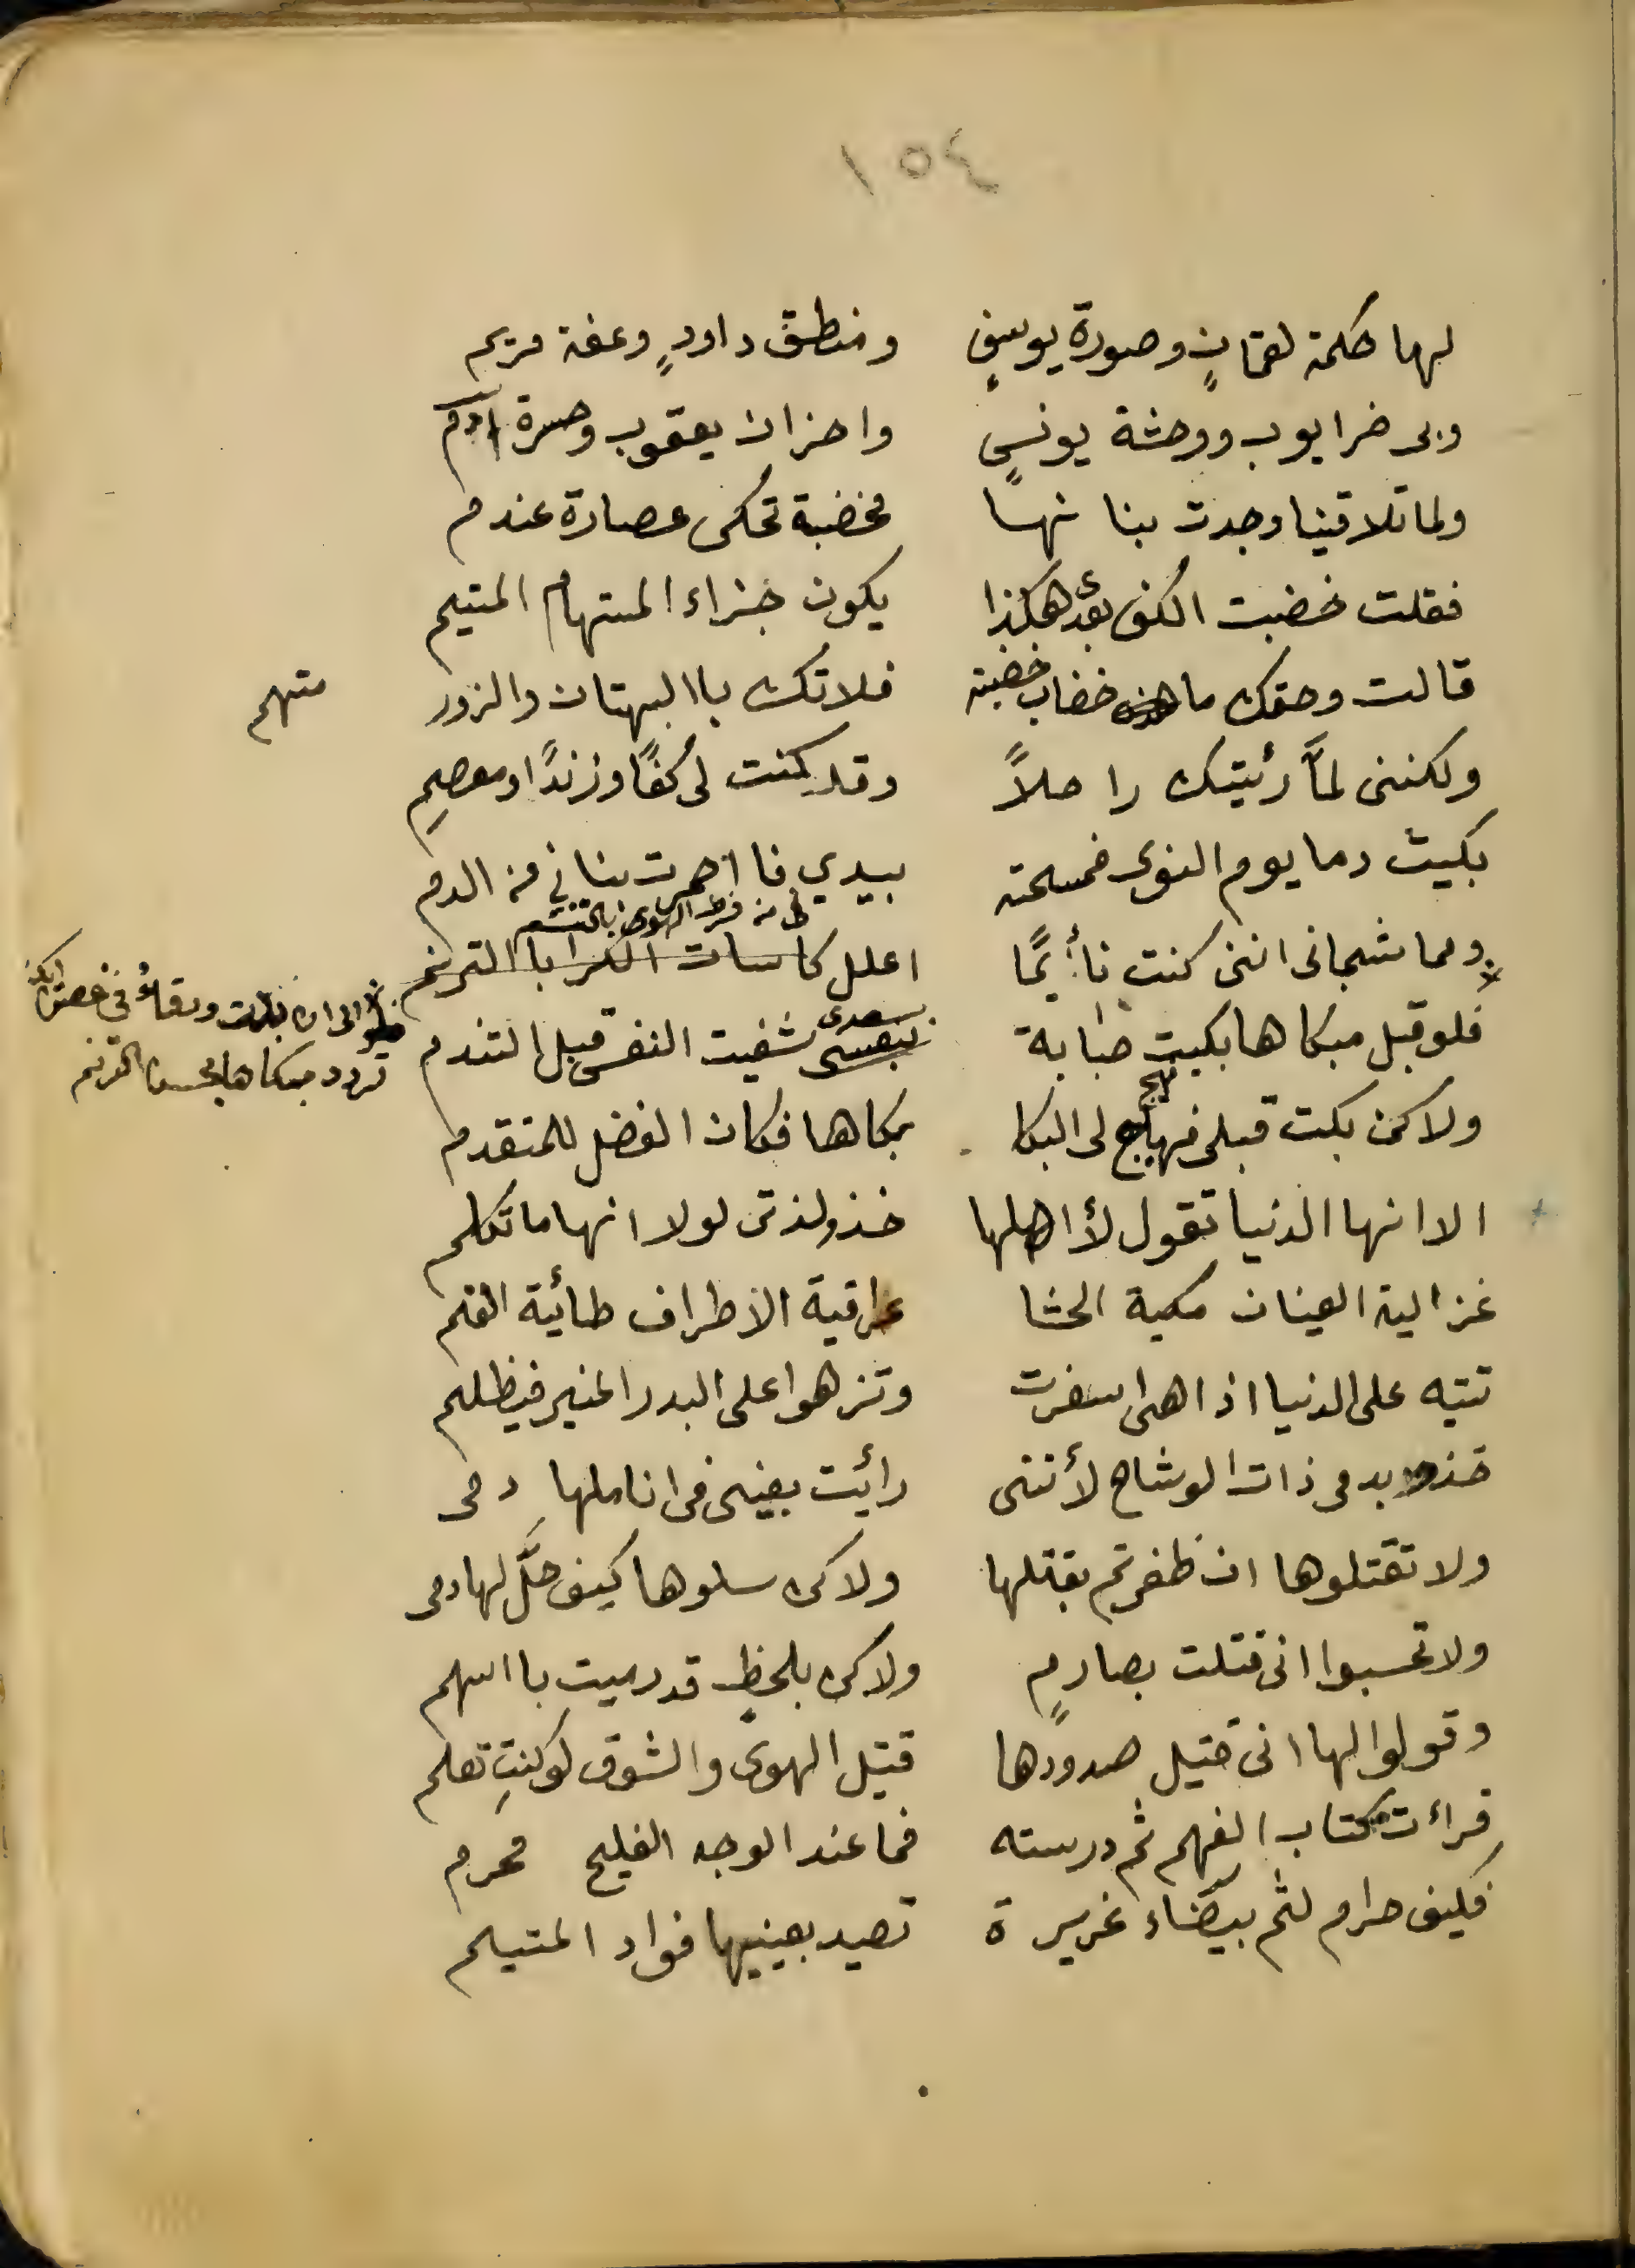 ١٥٤
لها حكمة لقمانٍ وصورة يوسفٍ ومنطق داودٍ وعفة مريم
وبى ضر ايوب ووحشة يونسٍ واحزان يعقوب وحسرة آدم
ولما تلاقينا وجدت بنانها مخضبة تحكى عصارة عندم
فقلت خضبت الكف بعدى هكذا يكون جزاء المستهام المتيم
قالت وحقك ما خضاب خضبته فلا تك باالبهتان والزور متهم
ولكننى لمَّا رئيتك راحلاً وقد كنت لى كفًا وزندًا ومعصمِ
بكيت دما يوم النوى فمسحته بيدي فااحمرت بناني من الدم
ومما شجانى اننى كنت نأيمًا اعلل كاسات الكرا باالترنم
من فرط الهوى بالتنسم
الى ان بكت ورقاءُ في غصن ايكة
تردد مبكاها بحسن الترنم
فلو قبل مبكاها بكيت صبابة بنفسى سعدى شفيت النفس قبل التندم
ولاكن بكت قبلى فهيج لى البكا بكاها فكان الفضل للمتقدم
الا انها الدنيا تقول لأاهلها خذو لذتى لولا انها ما تكلم
غزالية العينان مكية الحشا عراقية الاطراف طائية الفم
تتيه على الدنيا اذا هى اسفرت وتزهوا على البدر المنير فيظلم
خذو بدمى ذات الوشاح لأننى رائيت بعينى فى اناملها دمى
ولا تقتلوها ان ظفرتم بقتلها ولاكن سلوها كيف حلَّ لها دمى
ولا تحسبوا انى قتلت بصارمٍ ولاكن بلحظٍ قد رميت بااسهم
وقولوا لها انى قتيل صدودها قتيل الهوى والشوق لو كنتِ تعلم
قراءت كتاب الفهم ثم درسته فما عند الوجه الفليح محرم
فكيف حرام لثم بيضاء غريرة تصيد بعينيها فواد المتيم